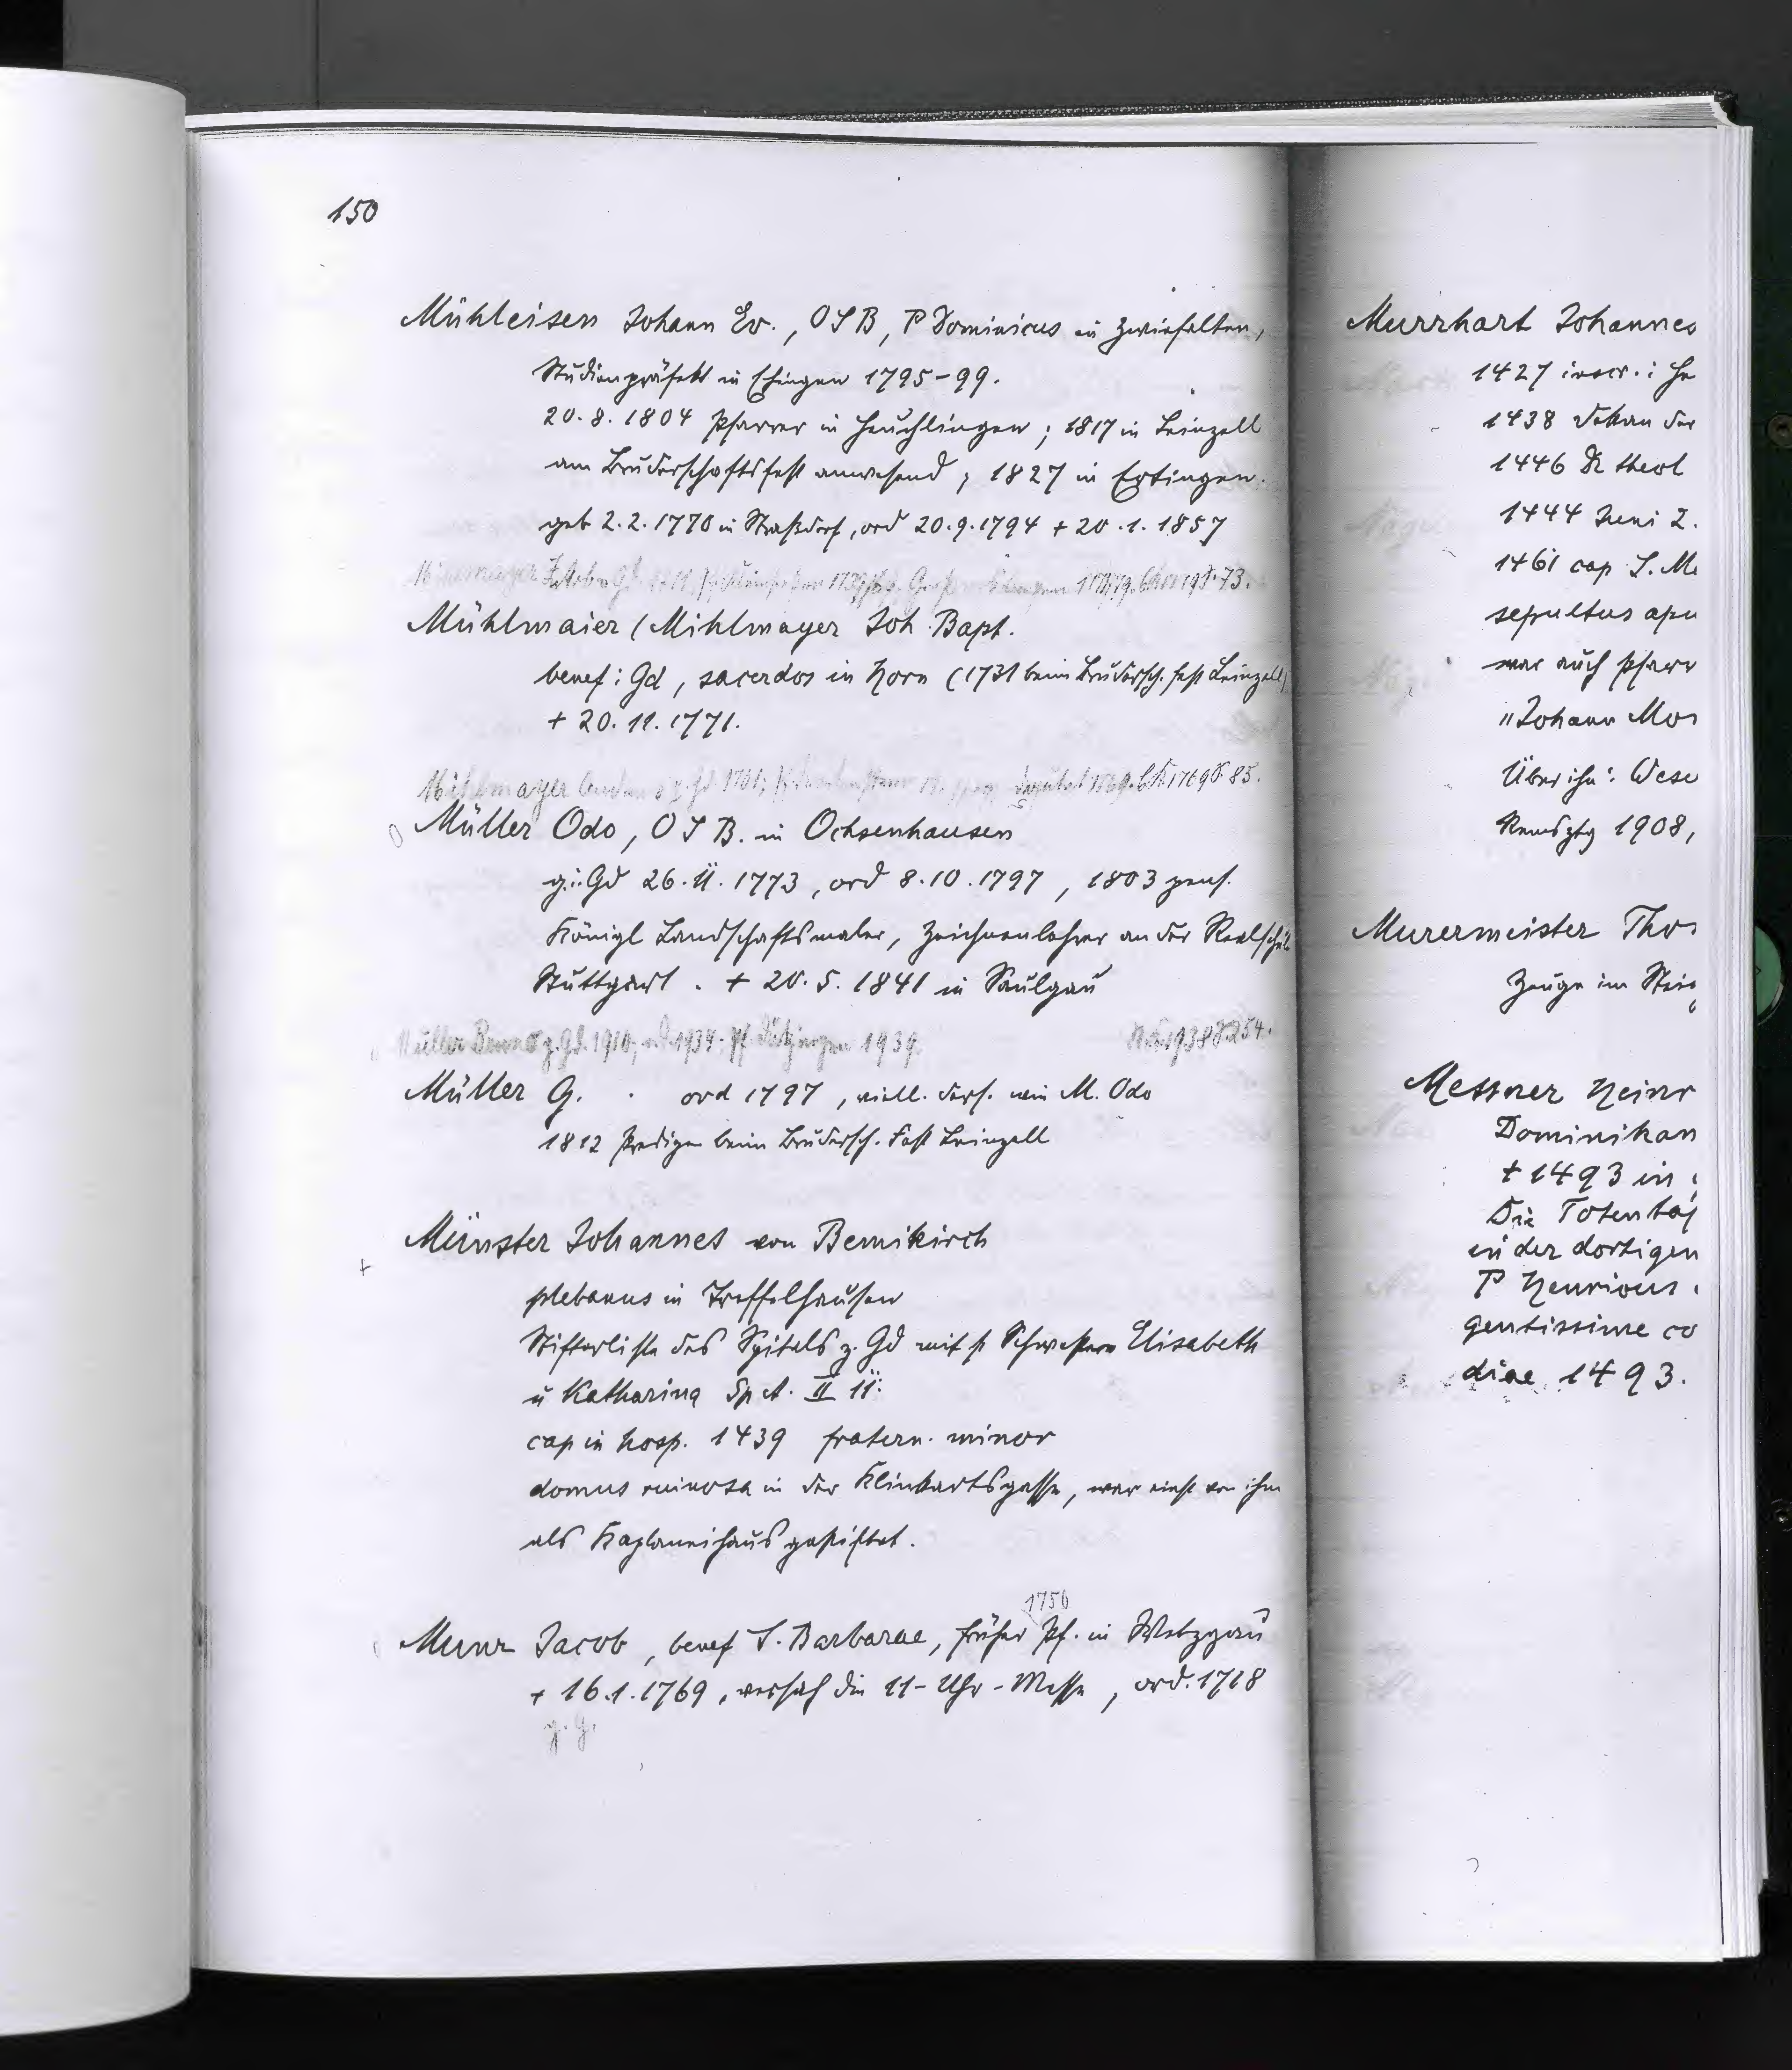 150
Mühleisen Johann Ev., OSB, P Dominicus in Zwiefalten,
Studienpräfekt in Ehingen 1795-99.
20.8.1804 Pfarrer in Heuchlingen ; 1817 in Leinzell
am Bruderschaftsfest anwesend ; 1827 in Ertingen.
geb 2.2.1770 in Straßdorf, ord 20.9.1794 + 20.1.1857
73.
Mühlmaier (Mihlmayer Joh. Bapt.
benef: Gd, sacerdos in Horn (1731 beim Brudersch. fest Leinzell)
+ 20.11.1771.
Mihlmayer 85.
Müller Odo, OSB. in Ochsenhausen
g.i.Gd 26.11.1773, ord 8.10.1797, 1803 pens.
Königl Landschaftsmaler, Zeichenlehrer an der Realschule
Stuttgart. + 20.5.1841 in Saulgau
Müller Benno z. Gd. 1910; 1934. Pf. 1939. 1938 S. 254.
Müller G. . ord 1797, viell. ders. wie M. Odo
1812 Prediger beim Brudersch. Fest Leinzell
Münster Johannes von Bemikirch
+
plebanus in Treffelhausen
Stifterliste des Spitals z. Gd mit s Schwestern Elisabeth
u Katharina Sp A. II 11.
cap in hosp. 1439 fratern. minor
domus ruinosa in der Klinkartsgasse, war einst von ihm
als Kaplaneihaus gestiftet.
1750
Murr Jacob, benef S. Barbarae, früher Pf. in Wetzgau
+ 16.1.1769, versah die 11-Uhr-Messe, ord. 1718
g. G.
Murrhart Johannes
1427 inscr.: He
1438 Dekan der
1446 Dr theol
1444 Juni 2.
1461 cap S. Ma
sepultus apu
war auch Pfarr
"Johann Mor
Über ihn: Wese
Remsztg 1908,
Murermeister Tho
Zeuge im Strei
Messner Heinr
Dominikan
+ 1493 in
Die Totentaf
in der dortigen
P Henricus
gentissime co
diae 1493.